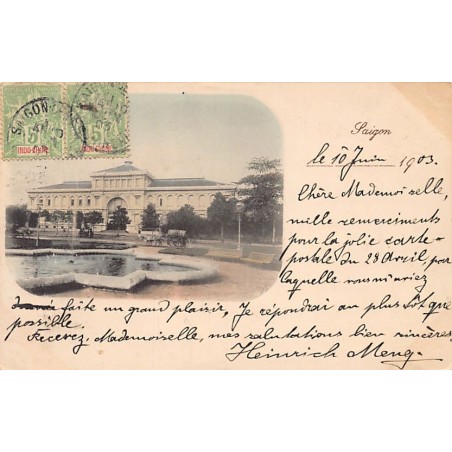 SAIGON
5
INDO-CHINE
5
INDO-CHINE
Saigon
le 10 Juin 1903.
Chère Mademoiselle,
mille remerciments
pour la jolie carte-
postale du 28 Avril, par
laquelle vous m'aviez
faite un grand plaisir, Je répondrai au plus tôt que
possible.
Recevez, Mademoiselle, mes salutations bien sincères
Heinrich Meng.